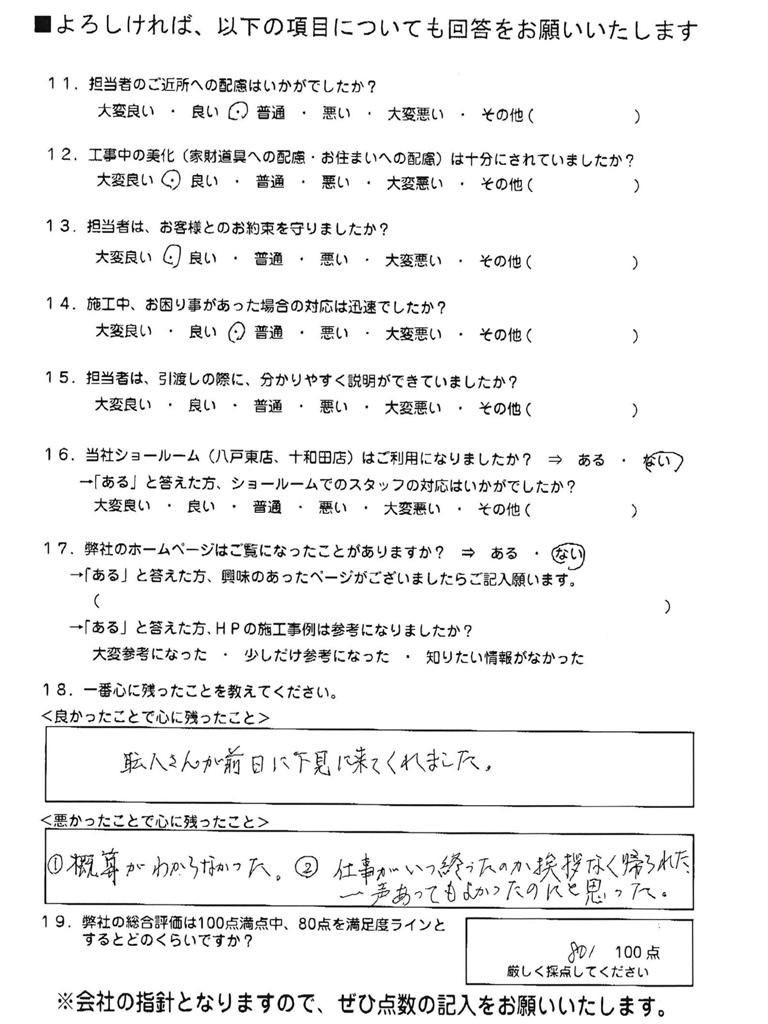 ■よろしければ、以下の項目についても回答をお願いいたします
11．担当者のご近所への配慮はいかがでしたか？
大変良い ・ 良い ・ 普通 ・ 悪い ・ 大変悪い ・ その他（ ）
12．工事中の美化（家財道具への配慮・お住まいへの配慮）は十分にされていましたか？
大変良い ・ 良い ・ 普通 ・ 悪い ・ 大変悪い ・ その他（ ）
13．担当者は、お客様とのお約束を守りましたか？
大変良い ・ 良い ・ 普通 ・ 悪い ・ 大変悪い ・ その他（ ）
14．施工中、お困り事があった場合の対応は迅速でしたか？
大変良い ・ 良い ・ 普通 ・ 悪い ・ 大変悪い ・ その他（ ）
15．担当者は、引渡しの際に、分かりやすく説明ができていましたか？
大変良い ・ 良い ・ 普通 ・ 悪い ・ 大変悪い ・ その他（ ）
16．当社ショールーム（八戸東店、十和田店）はご利用になりましたか？ ⇒ ある ・ ない
→「ある」と答えた方、ショールームでのスタッフの対応はいかがでしたか？
大変良い ・ 良い ・ 普通 ・ 悪い ・ 大変悪い ・ その他（ ）
17．弊社のホームページはご覧になったことがありますか？ ⇒ ある ・ ない
→「ある」と答えた方、興味のあったページがございましたらご記入願います。
（ ）
→「ある」と答えた方、HPの施工事例は参考になりましたか？
大変参考になった ・ 少しだけ参考になった ・ 知りたい情報がなかった
18．一番心に残ったことを教えてください。
＜良かったことで心に残ったこと＞
職人さんが前日に下見に来てくれました。
＜悪かったことで心に残ったこと＞
①概算がわからなかった。②仕事がいつ終ったのか挨拶なく帰られた、
一声あってもよかったのにと思った。
19．弊社の総合評価は100点満点中、80点を満足度ラインと
するとどのくらいですか？
80/ 100点
厳しく採点してください
※会社の指針となりますので、ぜひ点数の記入をお願いいたします。